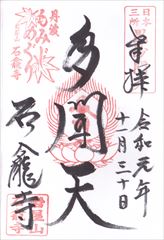 奉拝
令和元年
十一月三十日
多聞天
丹波
もみじ
めぐり
石龕寺
石龕寺